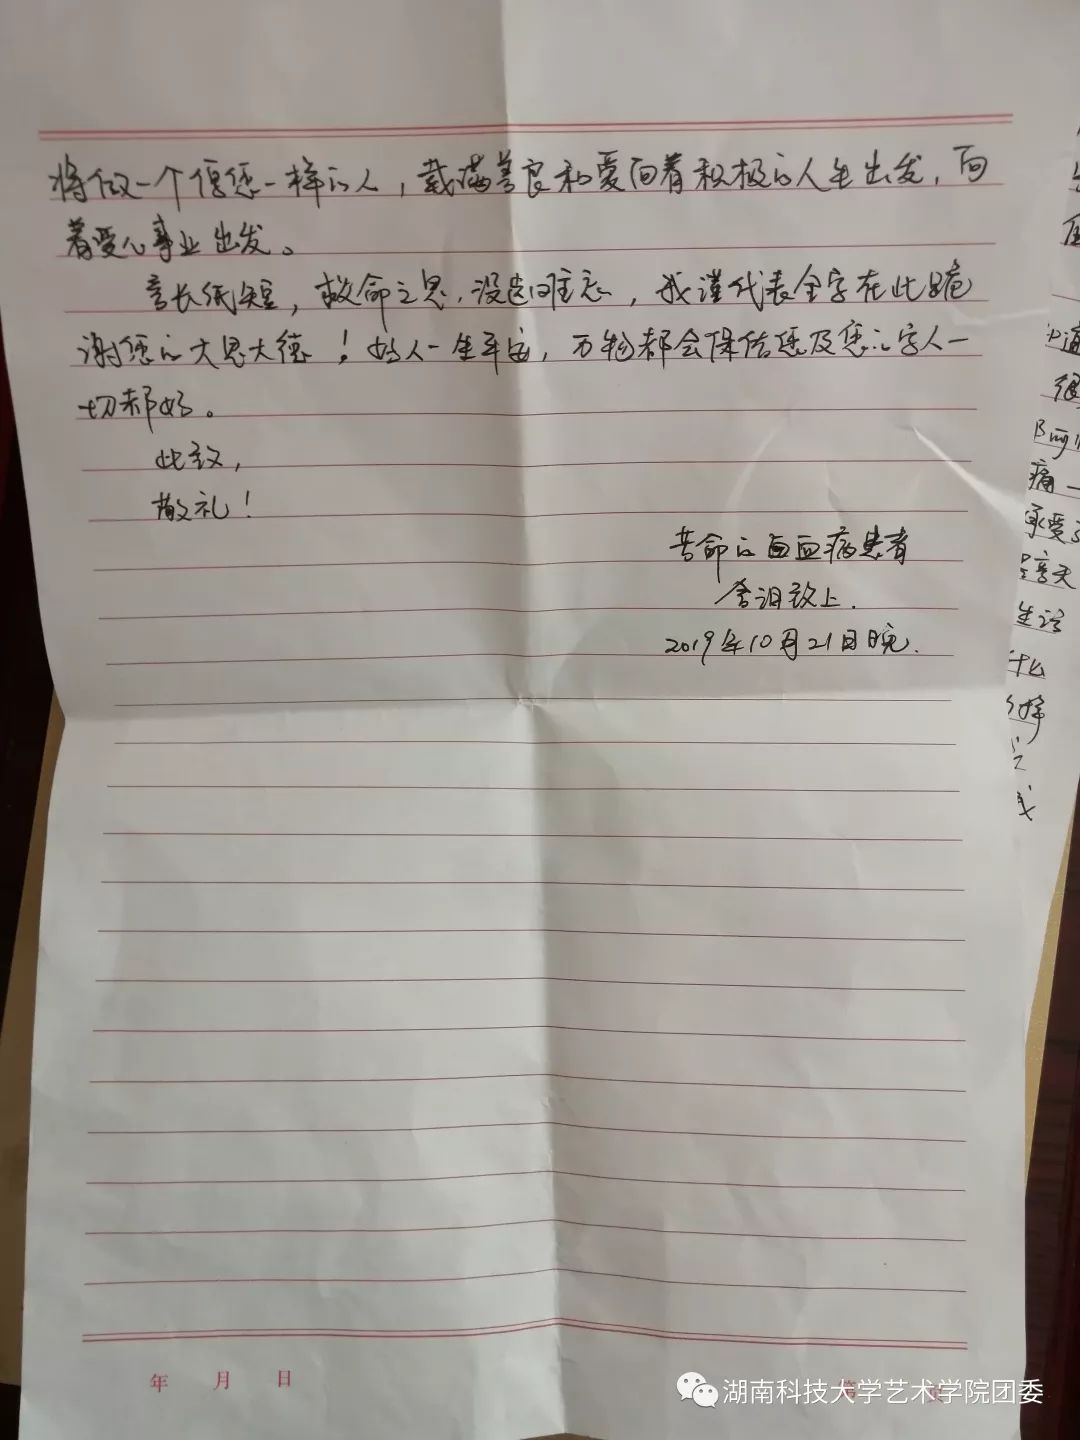 将做一个像您一样的人，载满善良和爱向着积极的人生出发，向
着爱心事业出发。
言长纸短，救命之恩，没齿难忘，我谨代表全家在此跪
谢您的大恩大德！好人一生平安，万物都会保佑您及您的家人一
切都好。
此致，
敬礼！
苦命的白血病患者
含泪致上.
2019年10月21日晚.
痛一
承受
生活
什么
年 月 日
湖南科技大学艺术学院团委